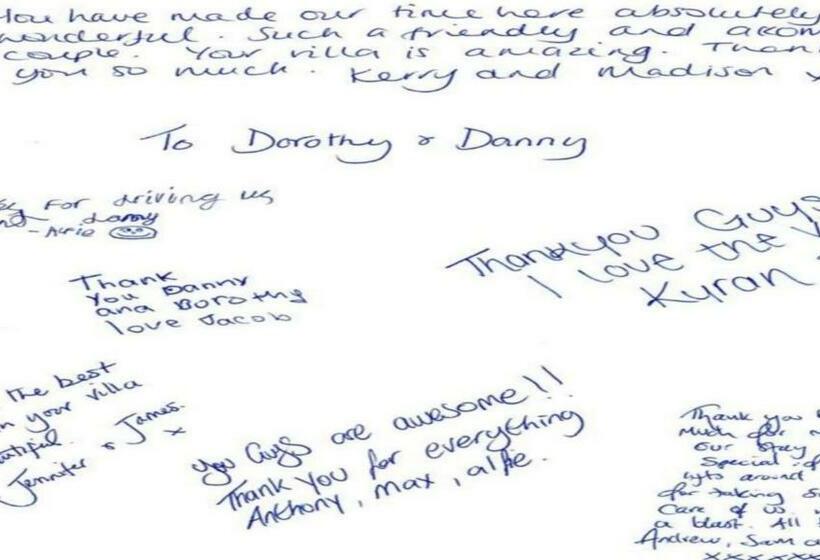 You have made our time here absolutely
wonderful. Such a friendly and accom
couple. Your villa is amazing. Than
you so much. Kerry and Madison x
To Dorothy & Danny
For driving us
danny
- Alfie
Thank
You Danny
and Dorothy
love Jacob
Thankyou Guys
I love the V
Kyran
The best
in your villa
Jennifer & James.
x
You Guys are awesome!!
Thank You for everything
Anthony, max, alfie.
Thank you
Much for
our stay
Special
around
for taking
Care of us.
a blast. All
Andrew, Sam
xxxxxxx